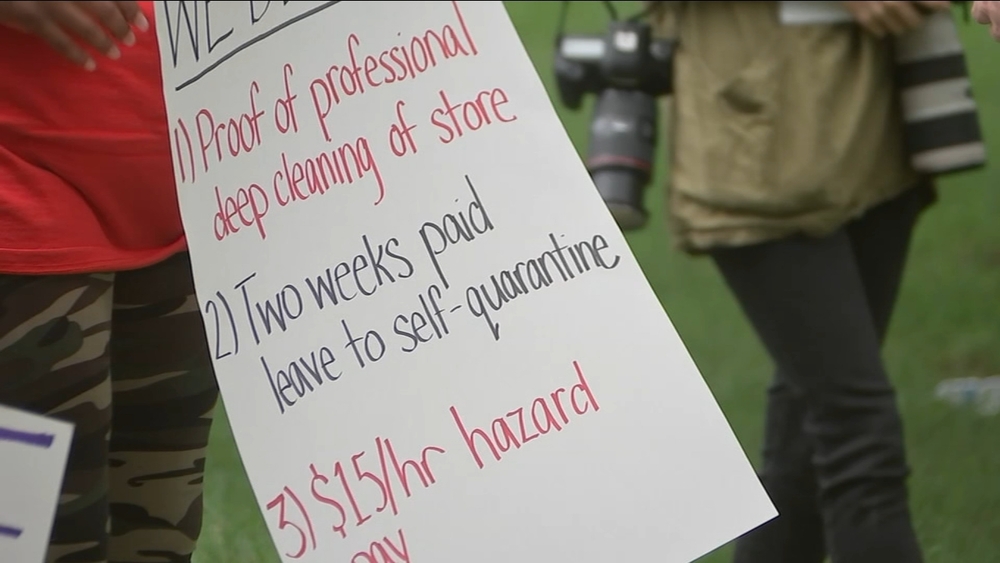 WE
1) Proof of professional
deep cleaning of store
2) Two weeks paid
leave to self-quarantine
3) $15/hr hazard
pay